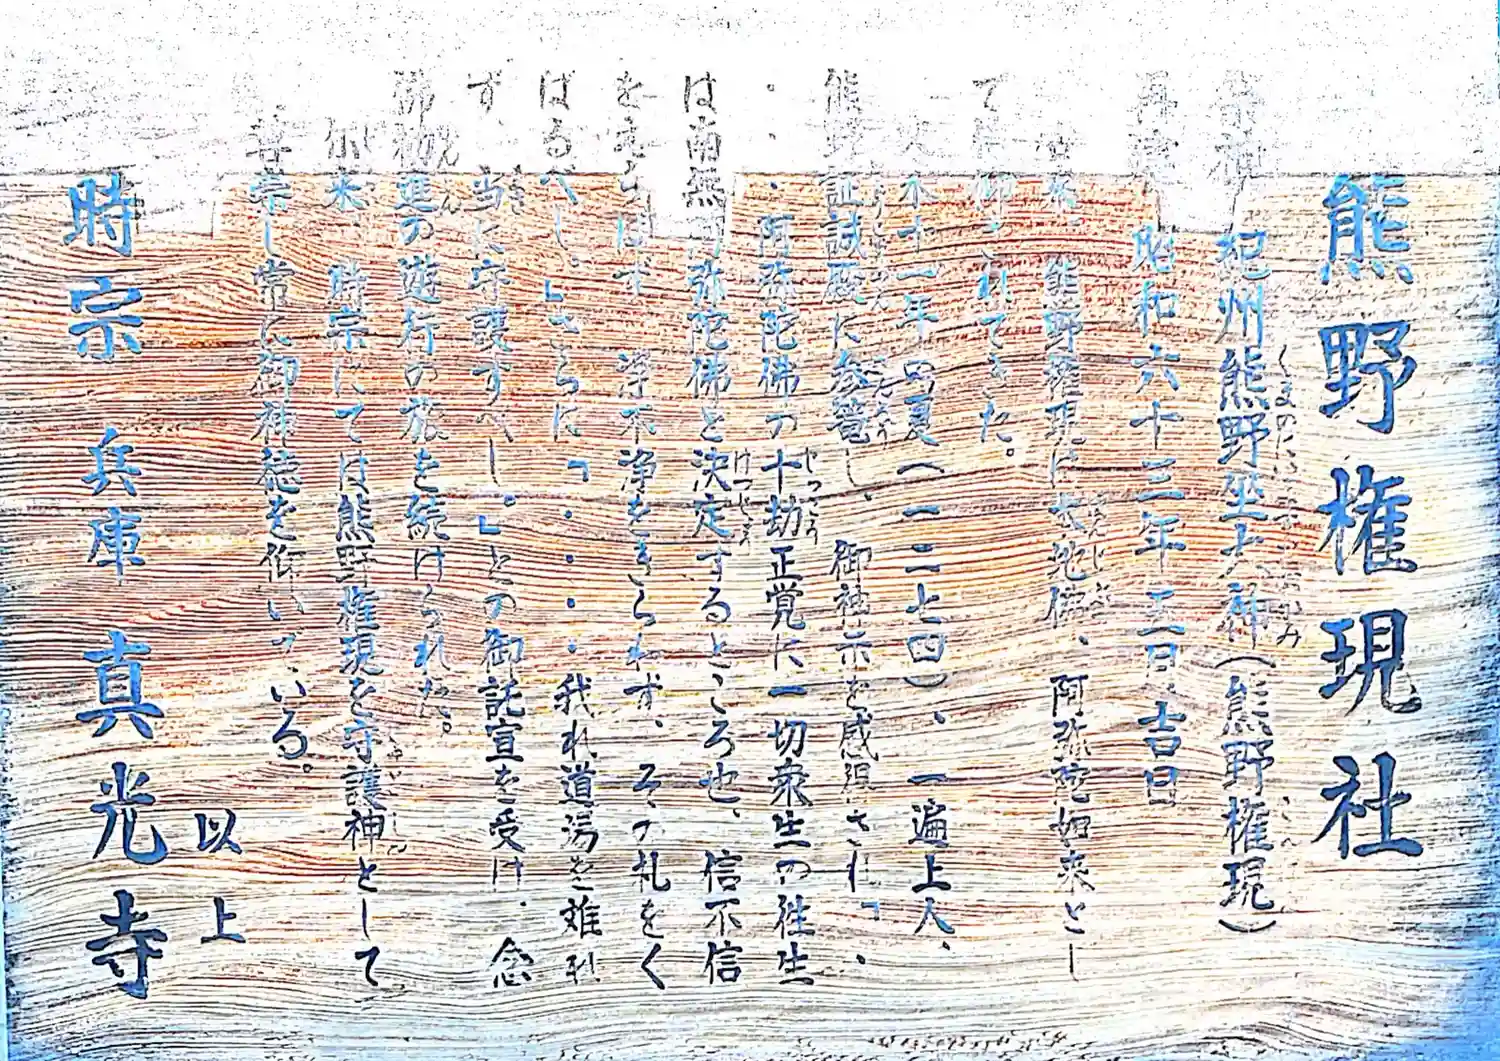 熊野権現社
祭神 紀州熊野坐大神(熊野権現)
再建 昭和六十三年三月吉日
古来、熊野権現は本地佛、阿弥陀如来とし
て仰がれてきた。
文永十一年の夏(一二七四)、一遍上人、
熊野証誠殿に参篭し、御神示を感得され「、
・・・阿弥陀佛の十劫正覚に一切衆生の往生
は南無阿弥陀佛と決定するところ也、信不信
をえらばず 浄不浄をきらわず、その札をく
ばるべし。」さらに「・・・我れ道場を離れ
ず、当に守護すべし。」との御託宣を受け、念
佛勧進の遊行の旅を続けられた。
尓来、時宗にては熊野権現を守護神として
普崇し常に御神徳を仰いでいる。
以上
時宗 兵庫 真光寺